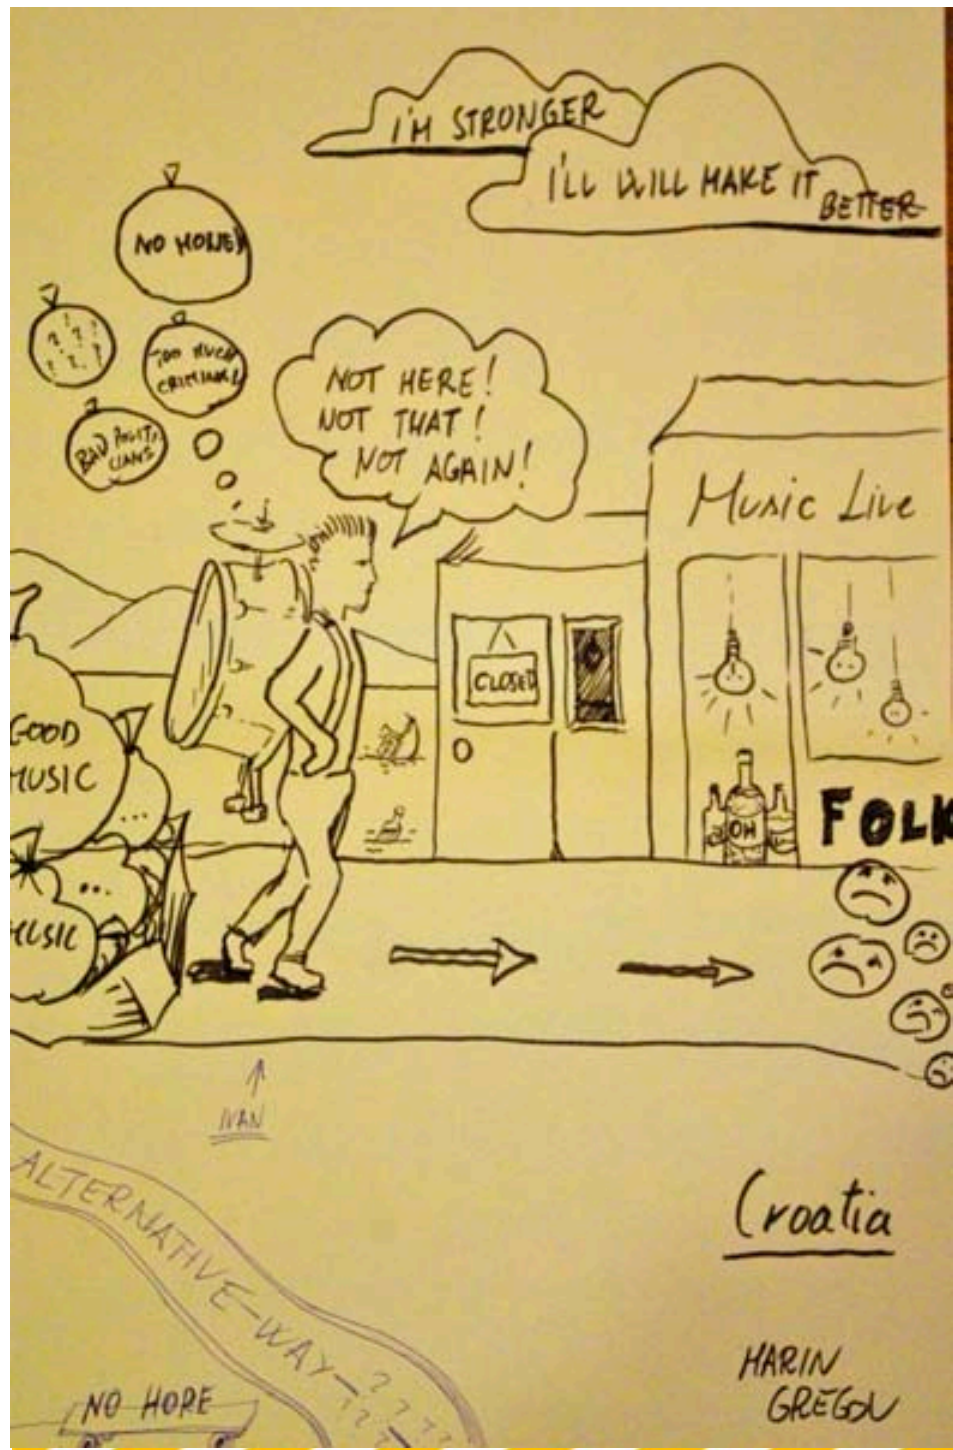 I'M STRONGER
I'LL WILL MAKE IT
BETTER
NO MONEY
? ? ? ? ? ? ?
TOO MUCH
CRIMINAL!
BAD POLITI
CIANS
NOT HERE!
NOT THAT!
NOT AGAIN!
Music Live
CLOSED
GOOD
MUSIC
...
OH
FOLK
...
MUSIC
IVAN
ALTERNATIVE-WAY-? ? ? ? ? ? ?
NO HOPE
Croatia
MARIN